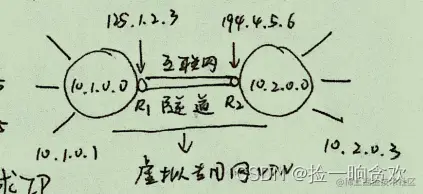 125.1.2.3
194.4.5.6
互联网
10.1.0.0
10.2.0.0
R1
隧道
R2
10.1.0.1
10.2.0.3
虚拟专用网VPN
CSDN @捡一晌贪欢